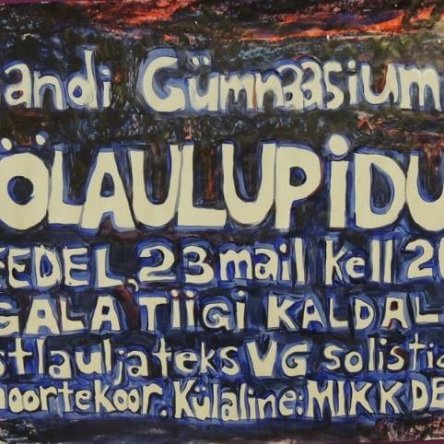 andi Gümnaasium
ÖLAULUPIDU
EDEL, 23 mail kell 2
GALA TIIGI KALDAL
st lauljateks VG solistid
noortekoor. Külaline: MIKK DE